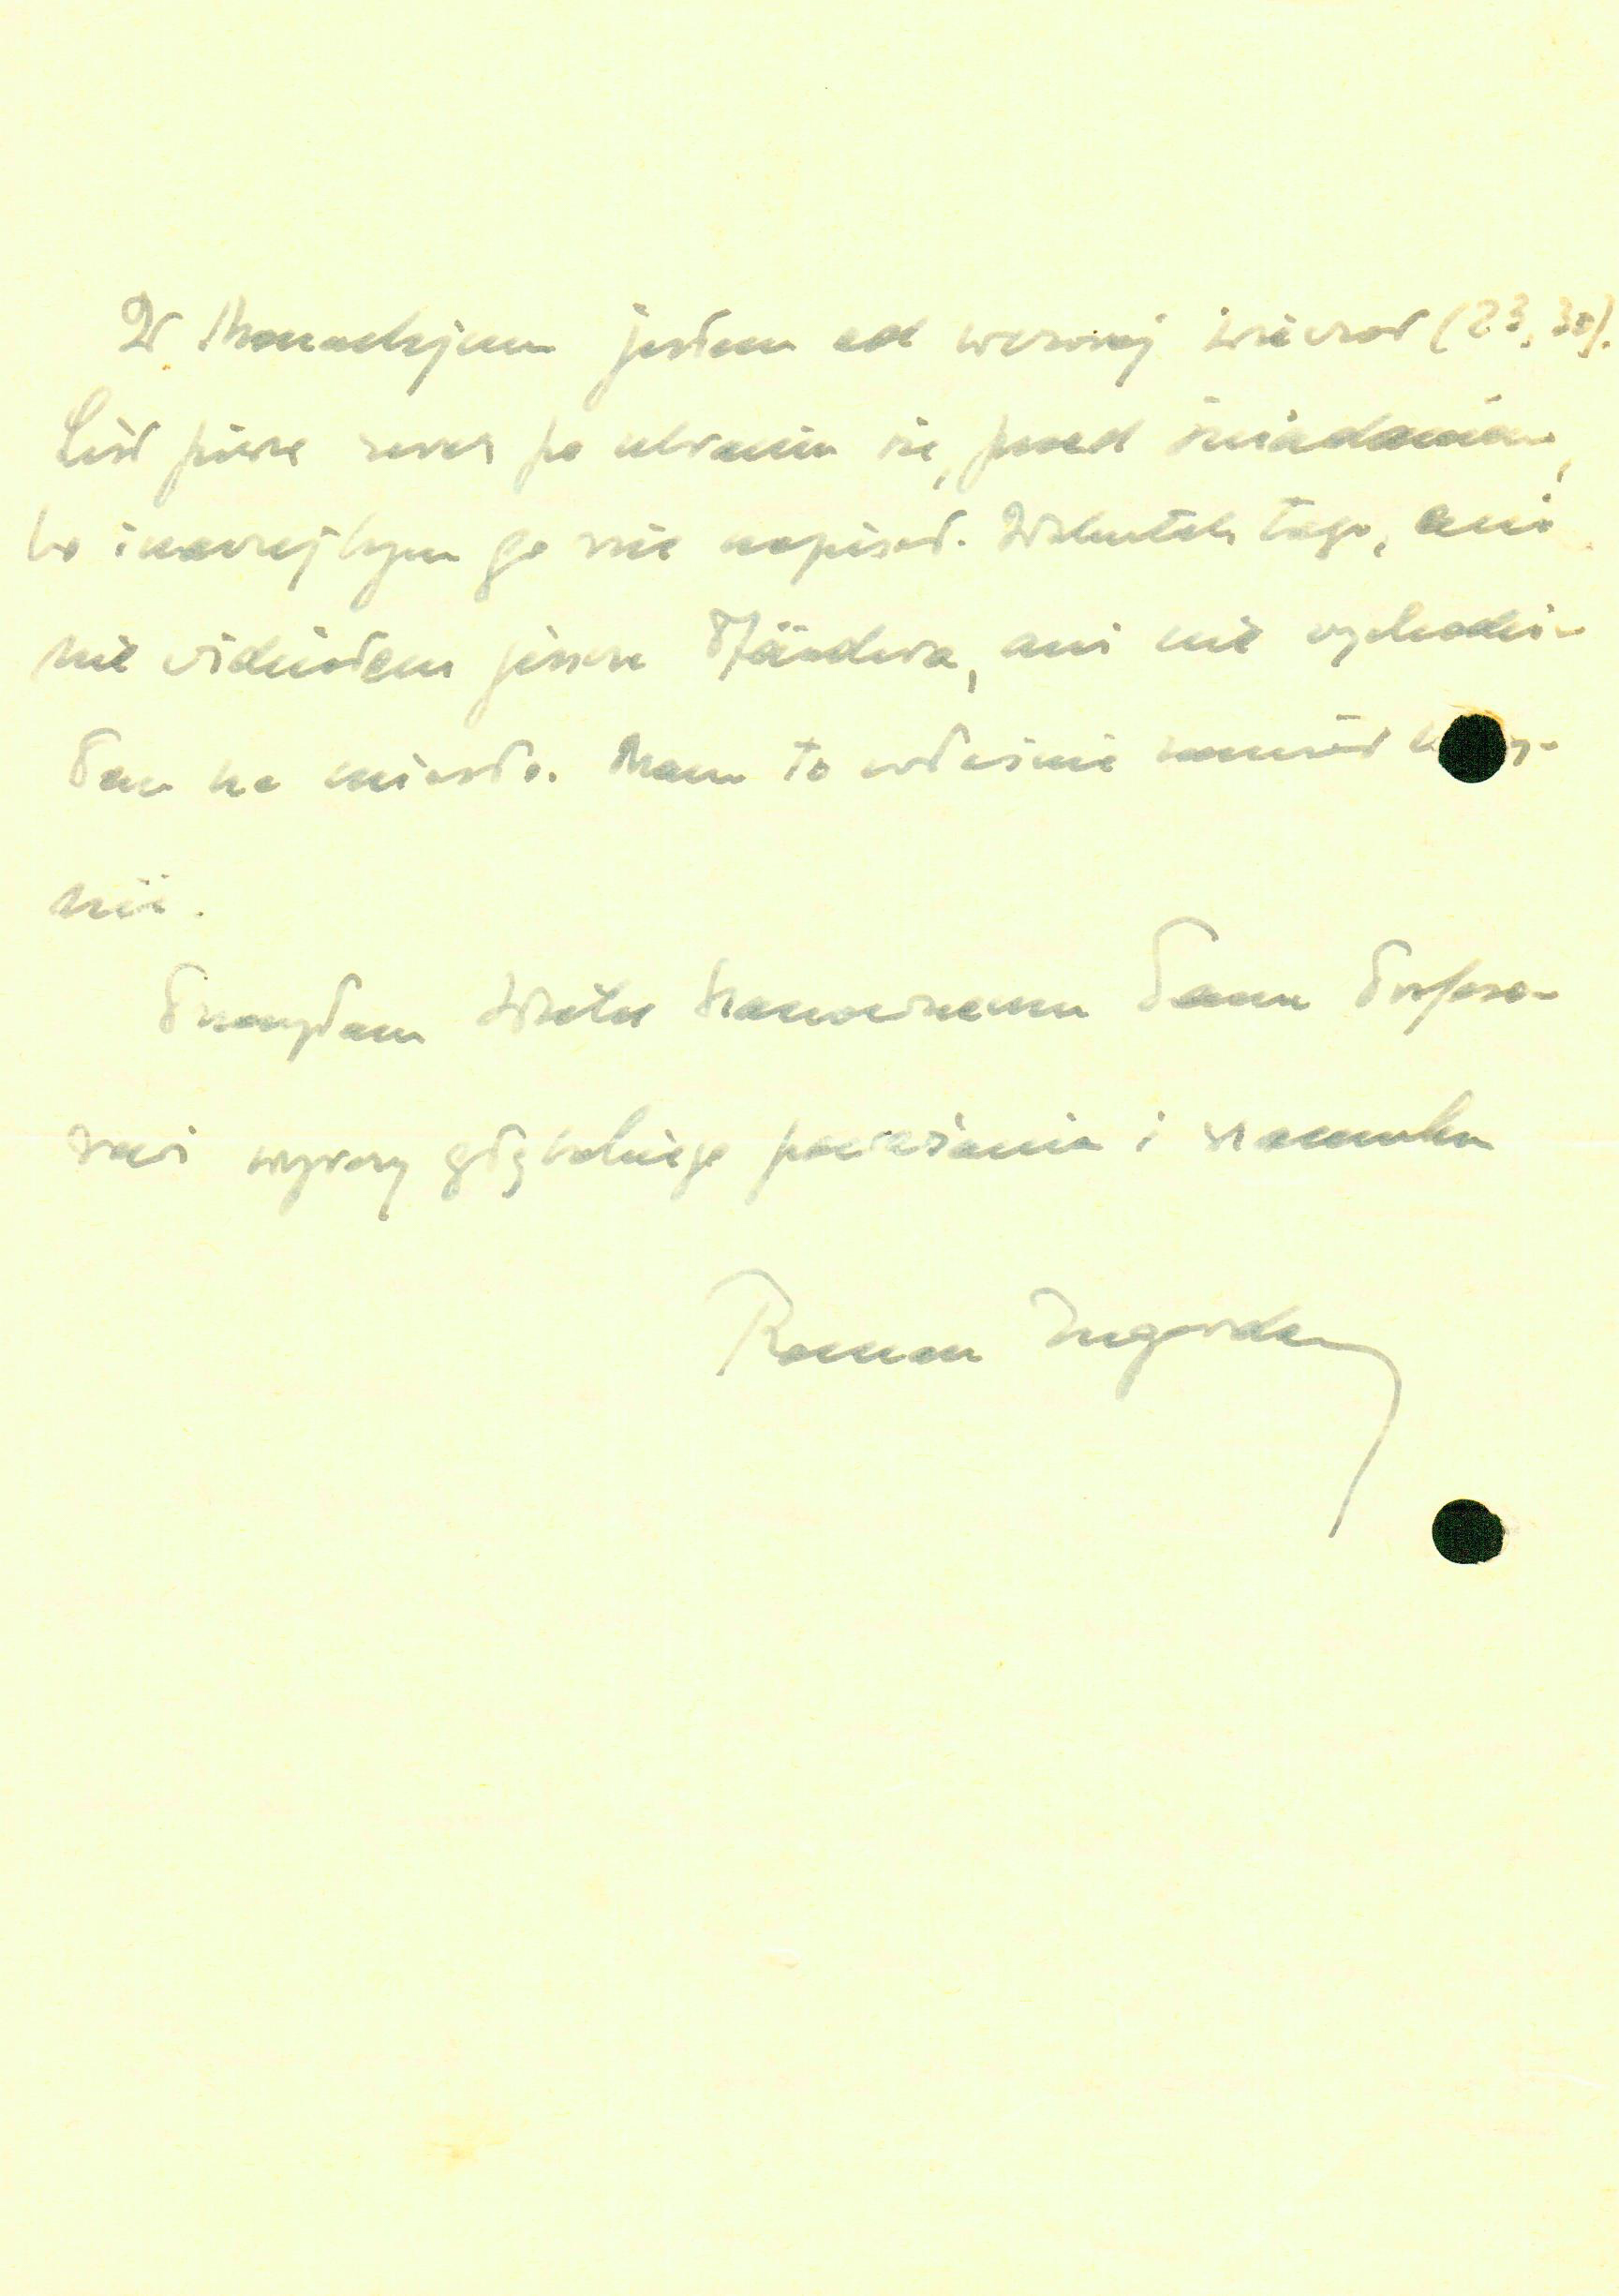 W Monachjum jestem od wczoraj wieczór (23,30).
List piszę zaraz po ubraniu się, przed śniadaniem,
bo inaczej bym go nie napisał. Wskutek tego, ani
nie widziałem jeszcze Pfändera, ani nie wychodzi-
łem na miasto. Mam to właśnie
nić.
Przesyłam Wielce Szanownemu Panu Profeso-
rowi wyrazy głębokiego poważania i szacunku
Roman Ingarden